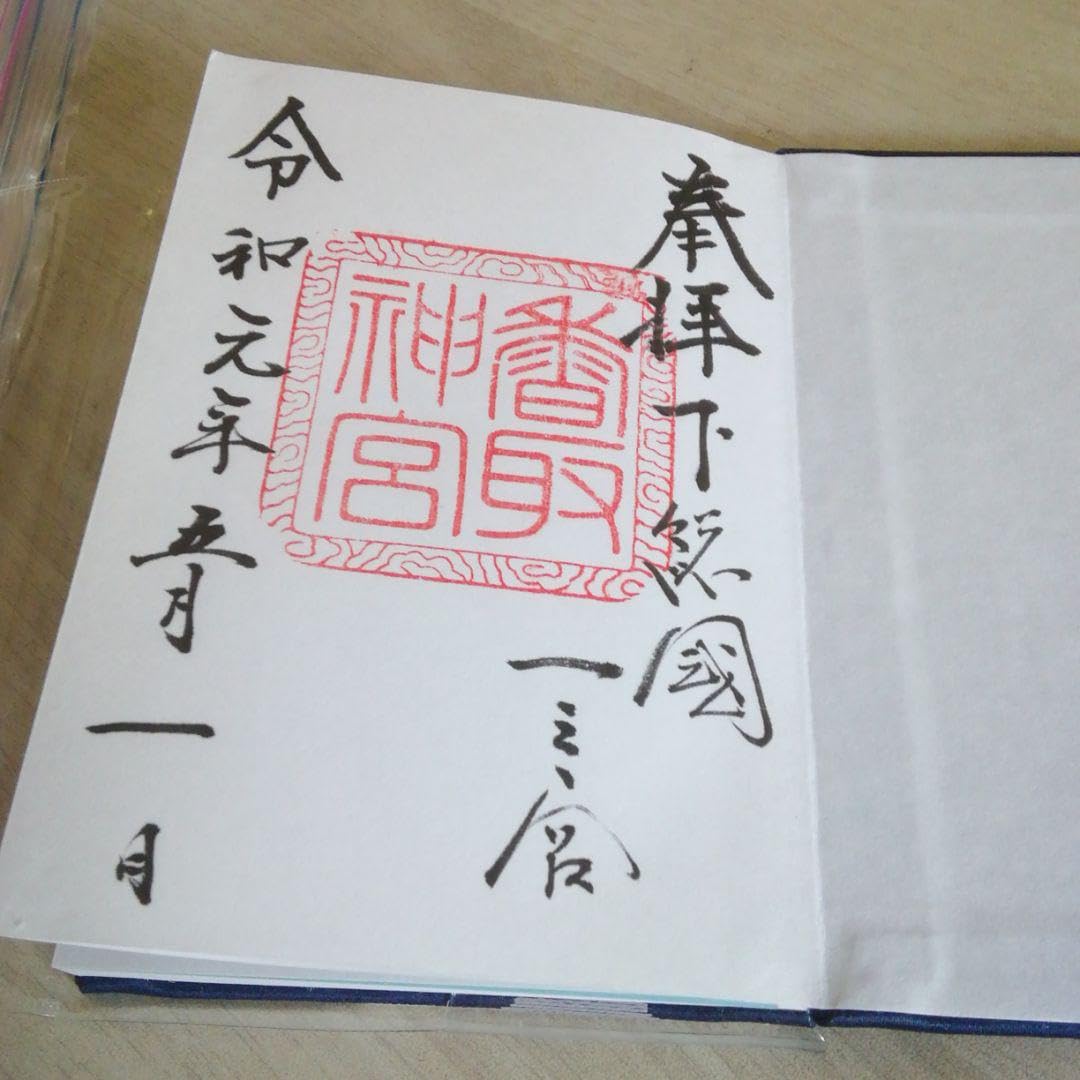 奉拝下総國
一之宮
香取
神宮
令和元年五月一日